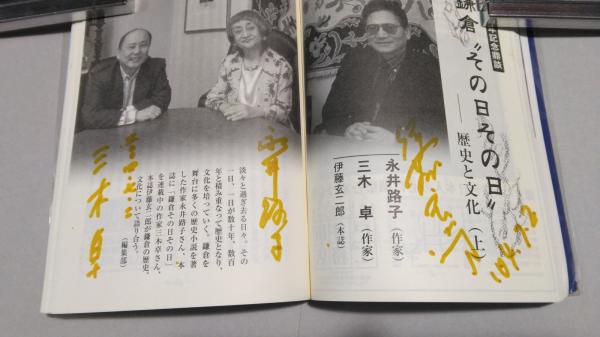 年記念鼎談
鎌倉〝その日その日〟
――歴史と文化(上)
永井路子(作家)
三木 卓(作家)
伊藤玄二郎(本誌)
永井路子
三木卓
淡々と過ぎ去る日々。その
一日、一日が数十年、数百
年と積み重なって歴史となり、
文化を培っていく。鎌倉を
舞台に多くの歴史小説を著
した作家永井路子さん、本
誌に「鎌倉その日その日」
を連載中の作家三木卓さん、
本誌伊藤玄二郎が鎌倉の歴史、
文化について語り合う。
(編集部)